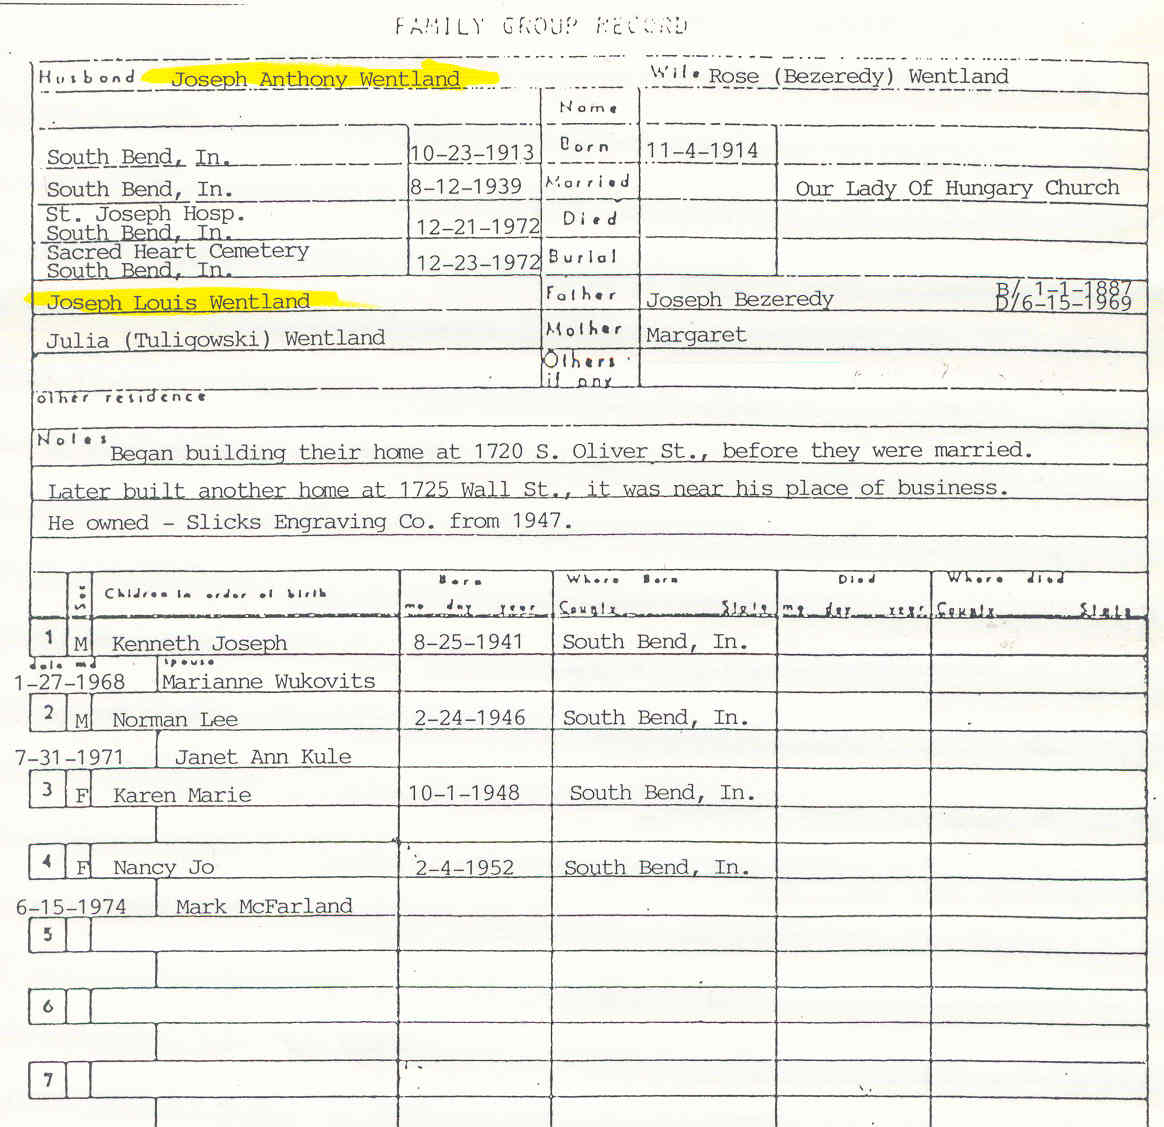 FAMILY GROUP RECORD
Husband Joseph Anthony Wentland Wife Rose (Bezeredy) Wentland
Name
South Bend, In. 10-23-1913 Born 11-4-1914
South Bend, In. 8-12-1939 Married Our Lady Of Hungary Church
St. Joseph Hosp.
South Bend, In. 12-21-1972 Died
Sacred Heart Cemetery
South Bend, In. 12-23-1972 Burial
Joseph Louis Wentland Father Joseph Bezeredy B/ 1-1-1887
D/6-15-1969
Julia (Tuligowski) Wentland Mother Margaret
Others
if any
other residence
Notes Began building their home at 1720 S. Oliver St., before they were married.
Later built another home at 1725 Wall St., it was near his place of business.
He owned - Slicks Engraving Co. from 1947.
Sex Children in order of birth Born Where Born Died Where died
mo day year County State mo day year County State
1 M Kenneth Joseph 8-25-1941 South Bend, In.
date md spouse
1-27-1968 Marianne Wukovits
2 M Norman Lee 2-24-1946 South Bend, In.
7-31-1971 Janet Ann Kule
3 F Karen Marie 10-1-1948 South Bend, In.
4 F Nancy Jo 2-4-1952 South Bend, In.
6-15-1974 Mark McFarland
5
6
7